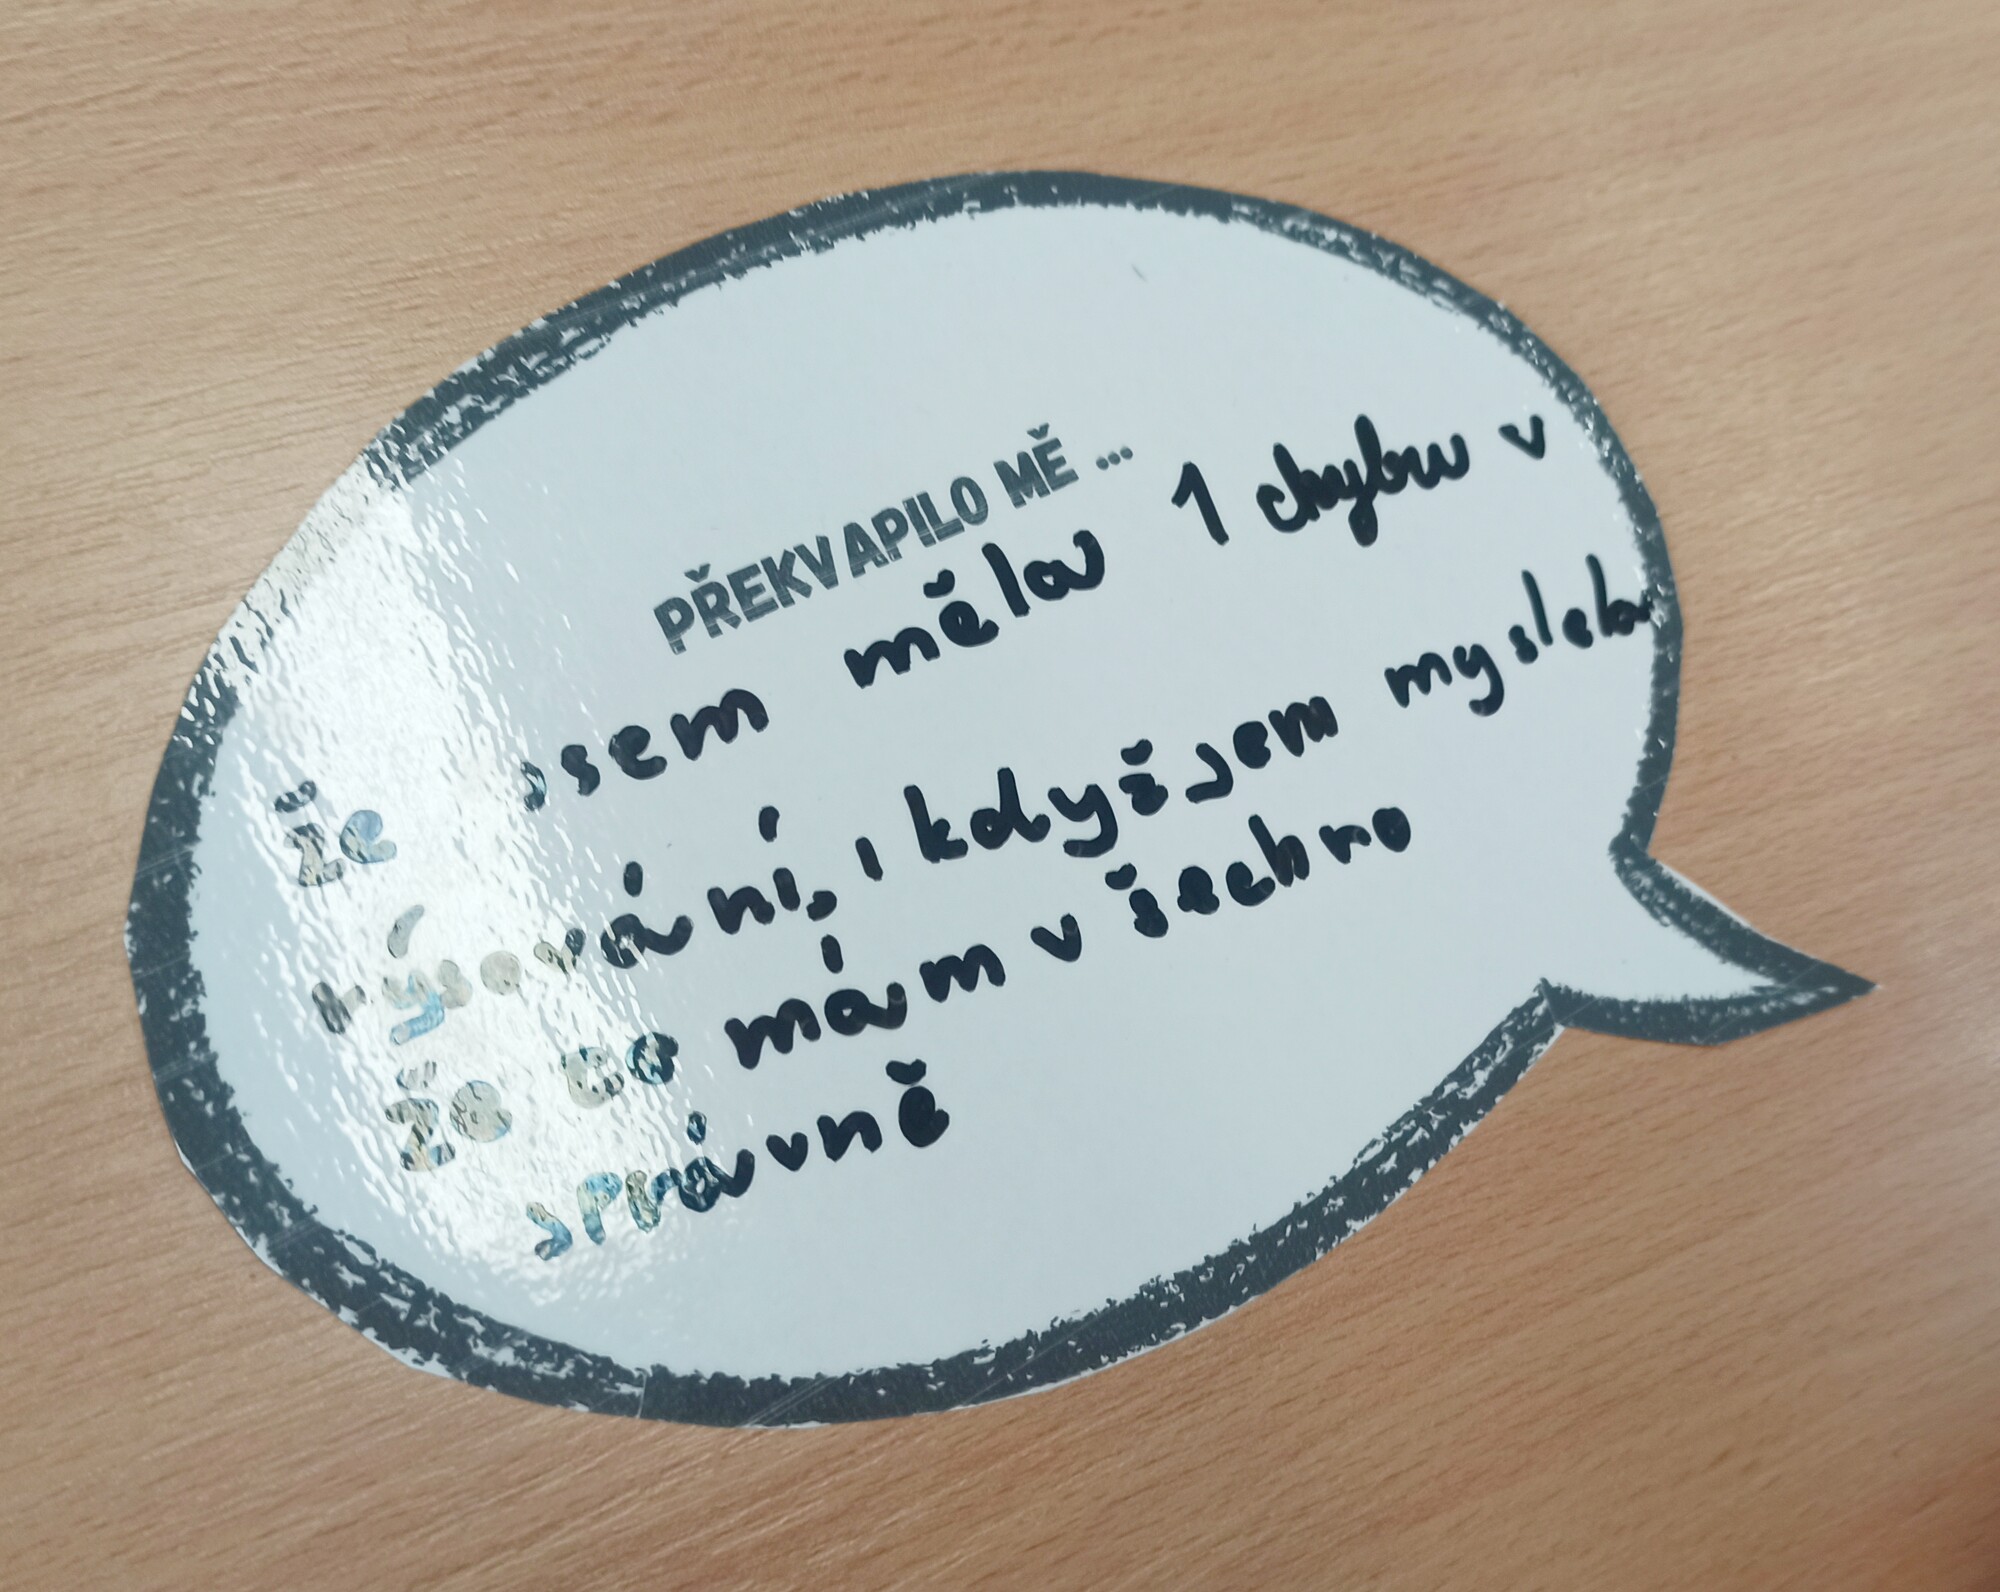 PŘEKVAPILO MĚ ...
že jsem měla 1 chybu v
rýsování, i když jsem myslela
že to mám v šechno
správně